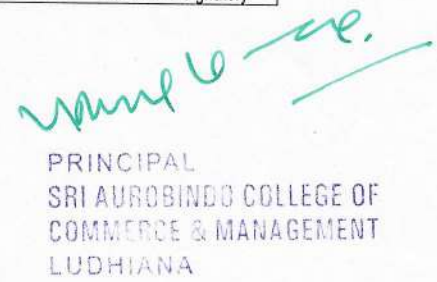 PRINCIPAL
SRI AUROBINDO COLLEGE OF
COMMERCE & MANAGEMENT
LUDHIANA